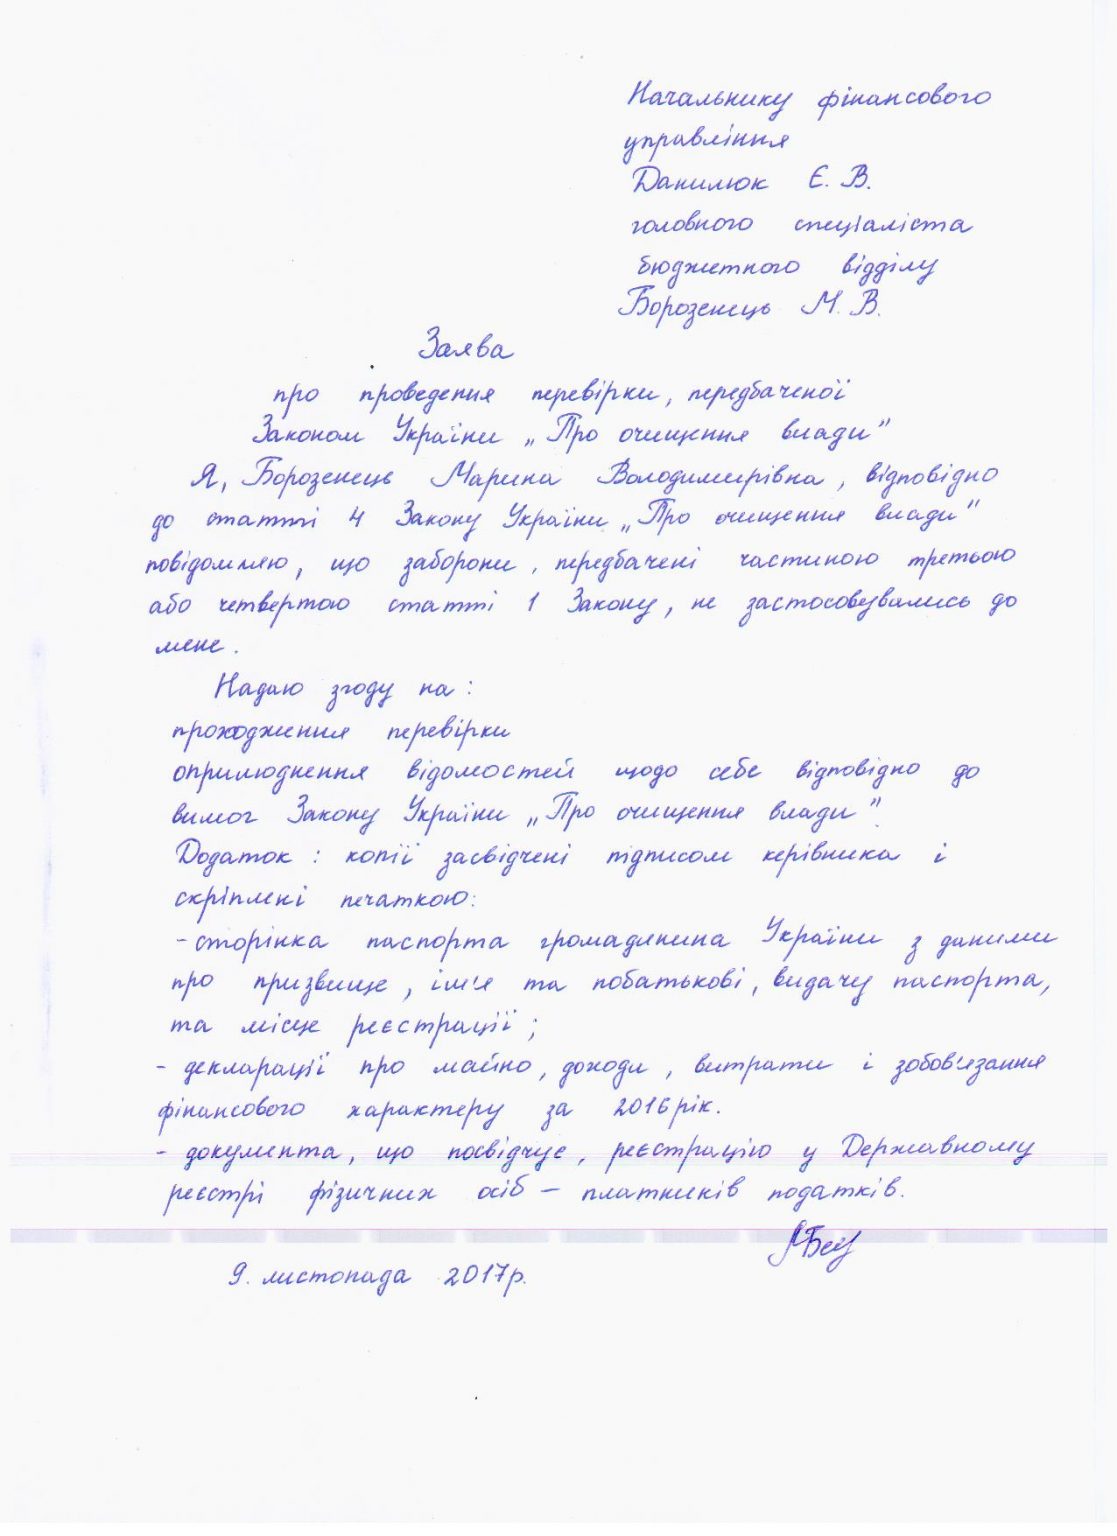 Начальнику фінансового
управління
Данилюк Є. В.
головного спеціаліста
бюджетного відділу
Борозенець М. В.
Заява
про проведення перевірки, передбаченої
Законом України „Про очищення влади"
Я, Борозенець Марина Володимирівна, відповідно
до статті 4 Закону України „Про очищення влади"
повідомляю, що заборони, передбачені частиною третьою
або четвертою статті 1 Закону, не застосовувались до
мене.
Надаю згоду на:
проходження перевірки
оприлюднення відомостей щодо себе відповідно до
вимог Закону України „Про очищення влади".
Додаток: копії засвідчені підписом керівника і
скріплені печаткою:
- сторінка паспорта громадянина України з даними
про призвище, ім'я та побатькові, видачу паспорта,
та місце реєстрації;
- декларації про майно, доходи, витрати і зобов'язання
фінансового характеру за 2016 рік.
- документа, що посвідчує, реєстрацію у Державному
реєстрі фізичних осіб – платників податків.
9. листопада 2017р.